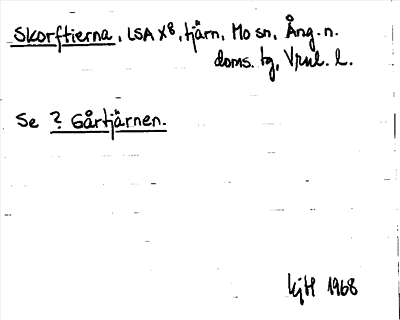 Skorftierna, LSA X8, tjärn, Mo sn, Ång. n.
doms. tg, Vrnl. l.
Se ? Gårtjärnen.
kjH 1968